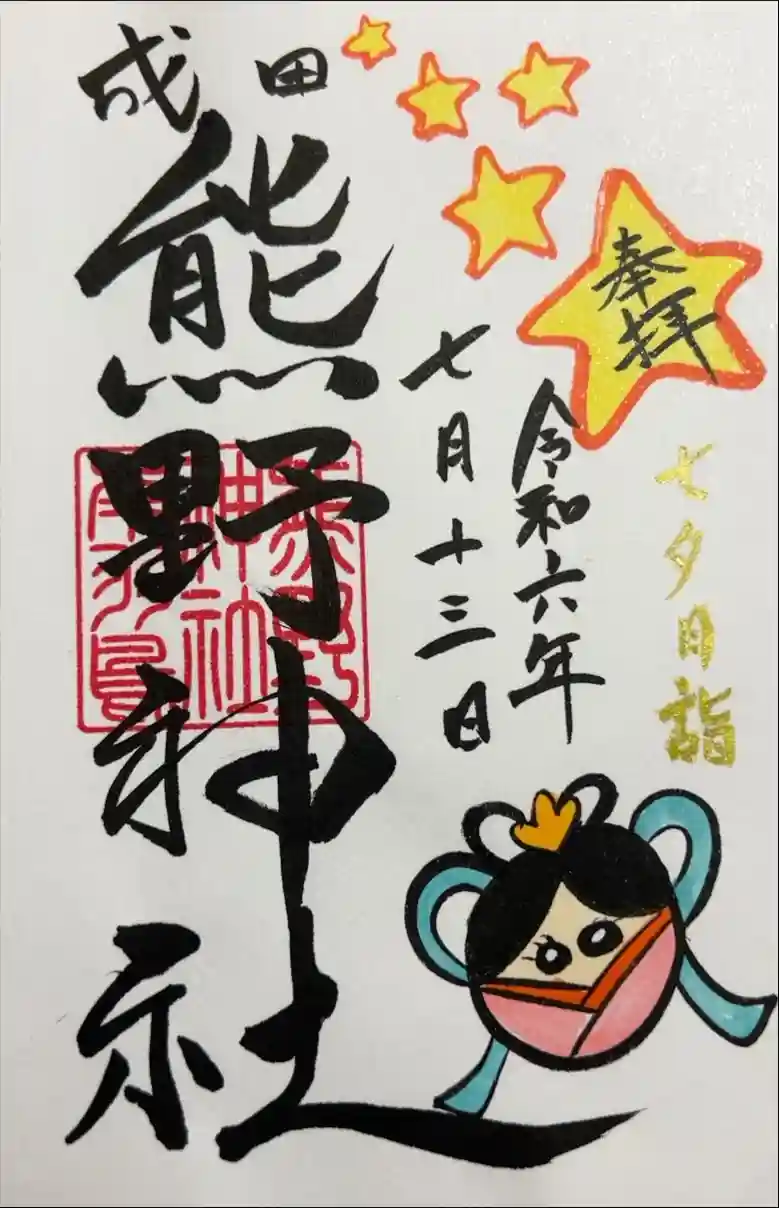 奉拝
七夕月詣
令和六年
七月十三日
成田
熊野神社
熊野
神社